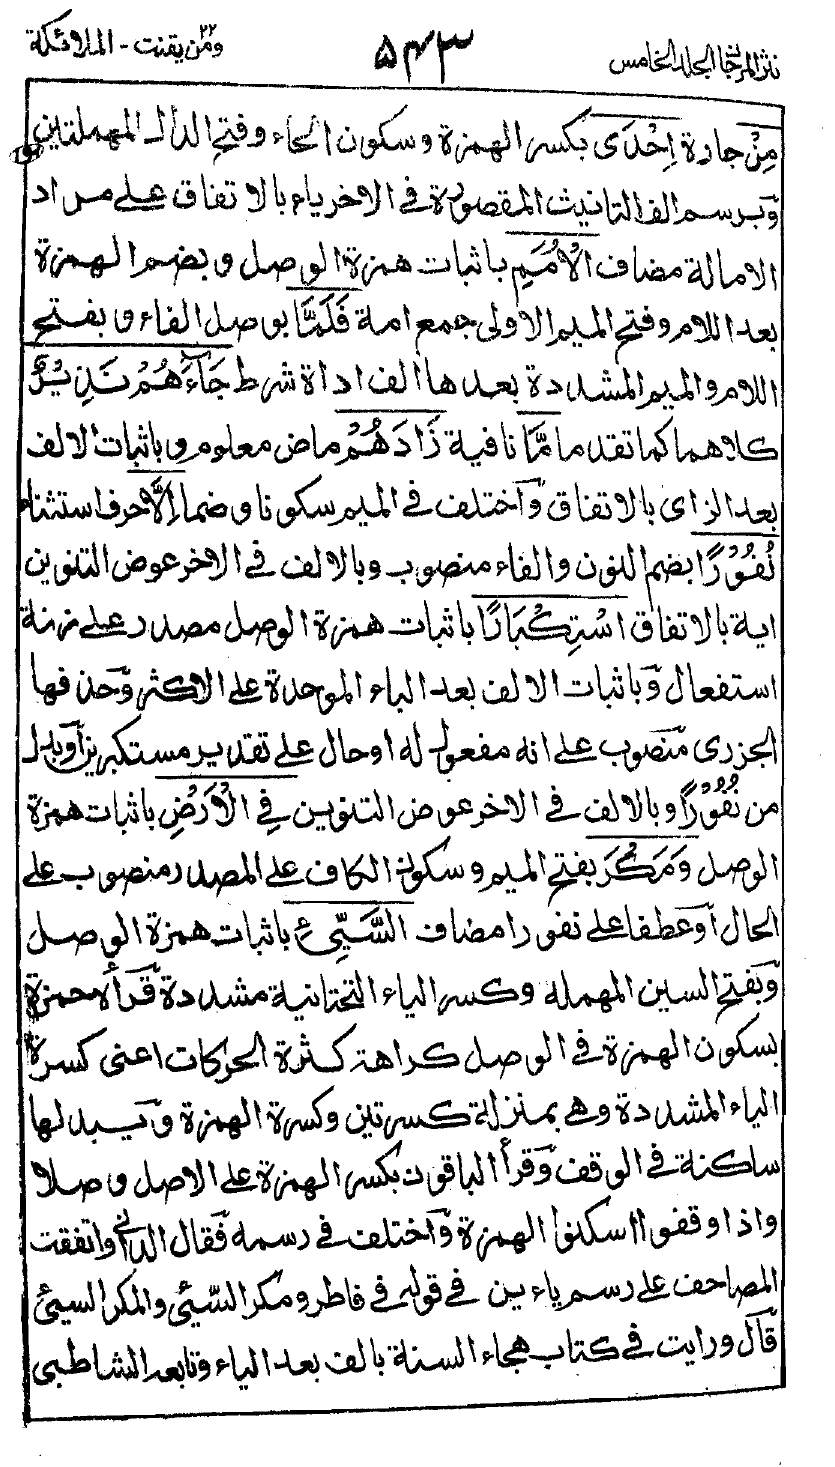 نثر المرجان الجلد الخامس ۵۴۳ ومن يقنت ٢٢ - الملائكة
مِنْ جارة اِحْدَى بكسر الهمزة وسكون الحاء وفتح الدال المهملتين
وبرسم الف التانيث المقصورة في الاخر ياء بالاتفاق على مراد
الامالة مضاف الْاُمَمِ باثبات همزة الوصل وبضم الهمزة
بعد اللام وفتح الميم الاولى جمع امة فَلَمَّا بوصل الفاء وبفتح
اللام والميم المشددة بعدها الف اداة شرط جَآءَهُمْ نَذِيْرٌ
كلاهما كما تقدما مَّا نافية زَادَهُمْ ماض معلوم وباثبات الالف
بعد الزاى بالاتفاق واختلف في الميم سكونا وضما اِلَّا حرف استثناء
نُفُوْرًا بضم النون والفاء منصوب وبالالف في الاخر عوض التنوين
اية بالاتفاق اسْتِكْبَارًا باثبات همزة الوصل مصدر على زنة
استفعال وباثبات الالف بعد الباء الموحدة على الاكثر وحذفها
الجزرى منصوب على انه مفعول له او حال على تقدير مستكبرين او بدل
من نُفُوْرًا وبالالف في الاخر عوض التنوين فِي الْاَرْضِ باثبات همزة
الوصل وَمَكْرَ بفتح الميم وسكون الكاف على المصدر منصوب على
الحال او عطفا على نفورا مضاف السَّيِّئِ باثبات همزة الوصل
وبفتح السين المهملة وكسر الياء التحتانية مشددة قرأه حمزة
بسكون الهمزة في الوصل كراهة كثرة الحركات اعنى كسرة
الياء المشددة وهي بمنزلة كسرتين وكسرة الهمزة ويبدلها
ساكنة في الوقف وقرأ الباقون بكسر الهمزة على الاصل وصلا
واذا وقفوا اسكنوا الهمزة واختلف في رسمه فقال الداني واتفقت
المصاحف على رسم ياءين في قوله في فاطر ومكر السّيئ والمكر السيئ
قال ورايت في كتاب هجاء السنة بالف بعد الياء وتابعه الشاطبي